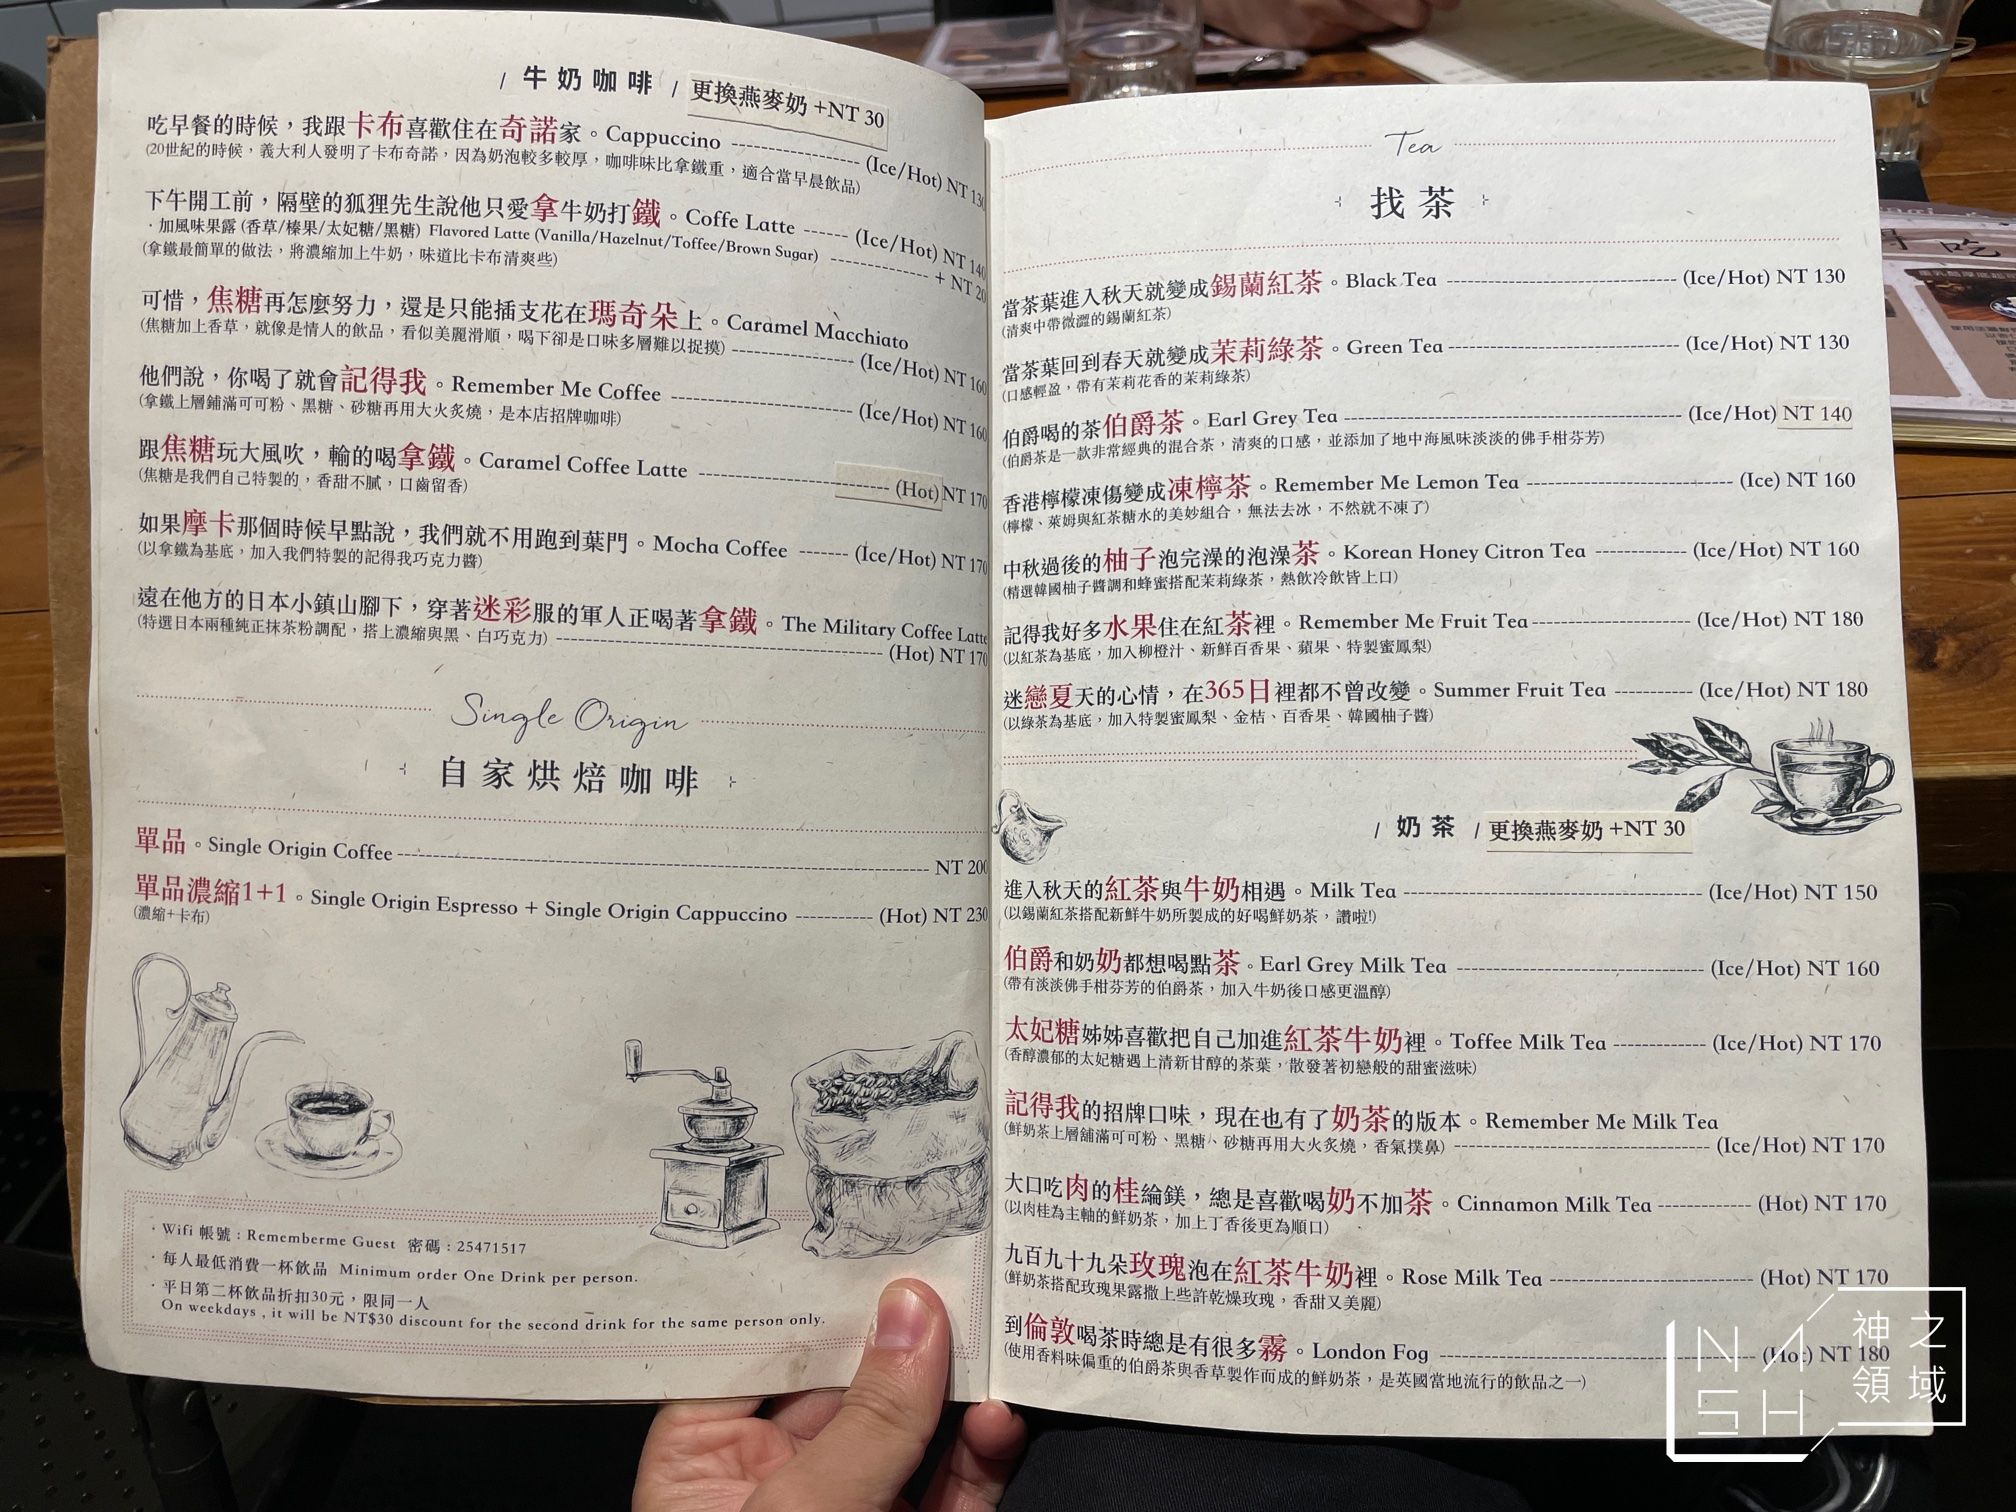 / 牛奶咖啡 / 更換燕麥奶 +NT 30
吃早餐的時候，我跟卡布喜歡住在奇諾家。Cappuccino (Ice/Hot) NT 130
(20世紀的時候，義大利人發明了卡布奇諾，因為奶泡較多較厚，咖啡味比拿鐵重，適合當早晨飲品)
下午開工前，隔壁的狐狸先生說他只愛拿牛奶打鐵。Coffe Latte (Ice/Hot) NT 140
· 加風味果露 (香草/榛果/太妃糖/黑糖) Flavored Latte (Vanilla/Hazelnut/Toffee/Brown Sugar) + NT 20
(拿鐵最簡單的做法，將濃縮加上牛奶，味道比卡布清爽些)
可惜，焦糖再怎麼努力，還是只能插支花在瑪奇朵上。Caramel Macchiato
(焦糖加上香草，就像是情人的飲品，看似美麗滑順，喝下卻是口味多層難以捉摸) (Ice/Hot) NT 160
他們說，你喝了就會記得我。Remember Me Coffee (Ice/Hot) NT 160
(拿鐵上層鋪滿可可粉、黑糖、砂糖再用大火炙燒，是本店招牌咖啡)
跟焦糖玩大風吹，輸的喝拿鐵。Caramel Coffee Latte (Hot) NT 170
(焦糖是我們自己特製的，香甜不膩，口齒留香)
如果摩卡那個時候早點說，我們就不用跑到葉門。Mocha Coffee (Ice/Hot) NT 170
(以拿鐵為基底，加入我們特製的記得我巧克力醬)
遠在他方的日本小鎮山腳下，穿著迷彩服的軍人正喝著拿鐵。The Military Coffee Latte
(特選日本兩種純正抹茶粉調配，搭上濃縮與黑、白巧克力) (Hot) NT 170
Single Origin
自家烘焙咖啡
單品。Single Origin Coffee NT 200
單品濃縮1+1。Single Origin Espresso + Single Origin Cappuccino (Hot) NT 230
(濃縮+卡布)
· Wifi 帳號 : Rememberme Guest 密碼 : 25471517
· 每人最低消費一杯飲品 Minimum order One Drink per person.
· 平日第二杯飲品折扣30元，限同一人
On weekdays , it will be NT$30 discount for the second drink for the same person only.
Tea
找茶
當茶葉進入秋天就變成錫蘭紅茶。Black Tea (Ice/Hot) NT 130
(清爽中帶微澀的錫蘭紅茶)
當茶葉回到春天就變成茉莉綠茶。Green Tea (Ice/Hot) NT 130
(口感輕盈，帶有茉莉花香的茉莉綠茶)
伯爵喝的茶伯爵茶。Earl Grey Tea (Ice/Hot) NT 140
(伯爵茶是一款非常經典的混合茶，清爽的口感，並添加了地中海風味淡淡的佛手柑芬芳)
香港檸檬凍傷變成凍檸茶。Remember Me Lemon Tea (Ice) NT 160
(檸檬、萊姆與紅茶糖水的美妙組合，無法去冰，不然就不凍了)
中秋過後的柚子泡完澡的泡澡茶。Korean Honey Citron Tea (Ice/Hot) NT 160
(精選韓國柚子醬調和蜂蜜搭配茉莉綠茶，熱飲冷飲皆上口)
記得我好多水果住在紅茶裡。Remember Me Fruit Tea (Ice/Hot) NT 180
(以紅茶為基底，加入柳橙汁、新鮮百香果、蘋果、特製蜜鳳梨)
迷戀夏天的心情，在365日裡都不曾改變。Summer Fruit Tea (Ice/Hot) NT 180
(以綠茶為基底，加入特製蜜鳳梨、金桔、百香果、韓國柚子醬)
/ 奶茶 / 更換燕麥奶 +NT 30
進入秋天的紅茶與牛奶相遇。Milk Tea (Ice/Hot) NT 150
(以錫蘭紅茶搭配新鮮牛奶所製成的好喝鮮奶茶，讚啦!)
伯爵和奶奶都想喝點茶。Earl Grey Milk Tea (Ice/Hot) NT 160
(帶有淡淡佛手柑芬芳的伯爵茶，加入牛奶後口感更溫醇)
太妃糖姊姊喜歡把自己加進紅茶牛奶裡。Toffee Milk Tea (Ice/Hot) NT 170
(香醇濃郁的太妃糖遇上清新甘醇的茶葉，散發著初戀般的甜蜜滋味)
記得我的招牌口味，現在也有了奶茶的版本。Remember Me Milk Tea
(鮮奶茶上層舖滿可可粉、黑糖、砂糖再用大火炙燒，香氣撲鼻) (Ice/Hot) NT 170
大口吃肉的桂綸鎂，總是喜歡喝奶不加茶。Cinnamon Milk Tea (Hot) NT 170
(以肉桂為主軸的鮮奶茶，加上丁香後更為順口)
九百九十九朵玫瑰泡在紅茶牛奶裡。Rose Milk Tea (Hot) NT 170
(鮮奶茶搭配玫瑰果露撒上些許乾燥玫瑰，香甜又美麗)
到倫敦喝茶時總是有很多霧。London Fog (Hot) NT 180
(使用香料味偏重的伯爵茶與香草製作而成的鮮奶茶，是英國當地流行的飲品之一)
NASH
神之領域